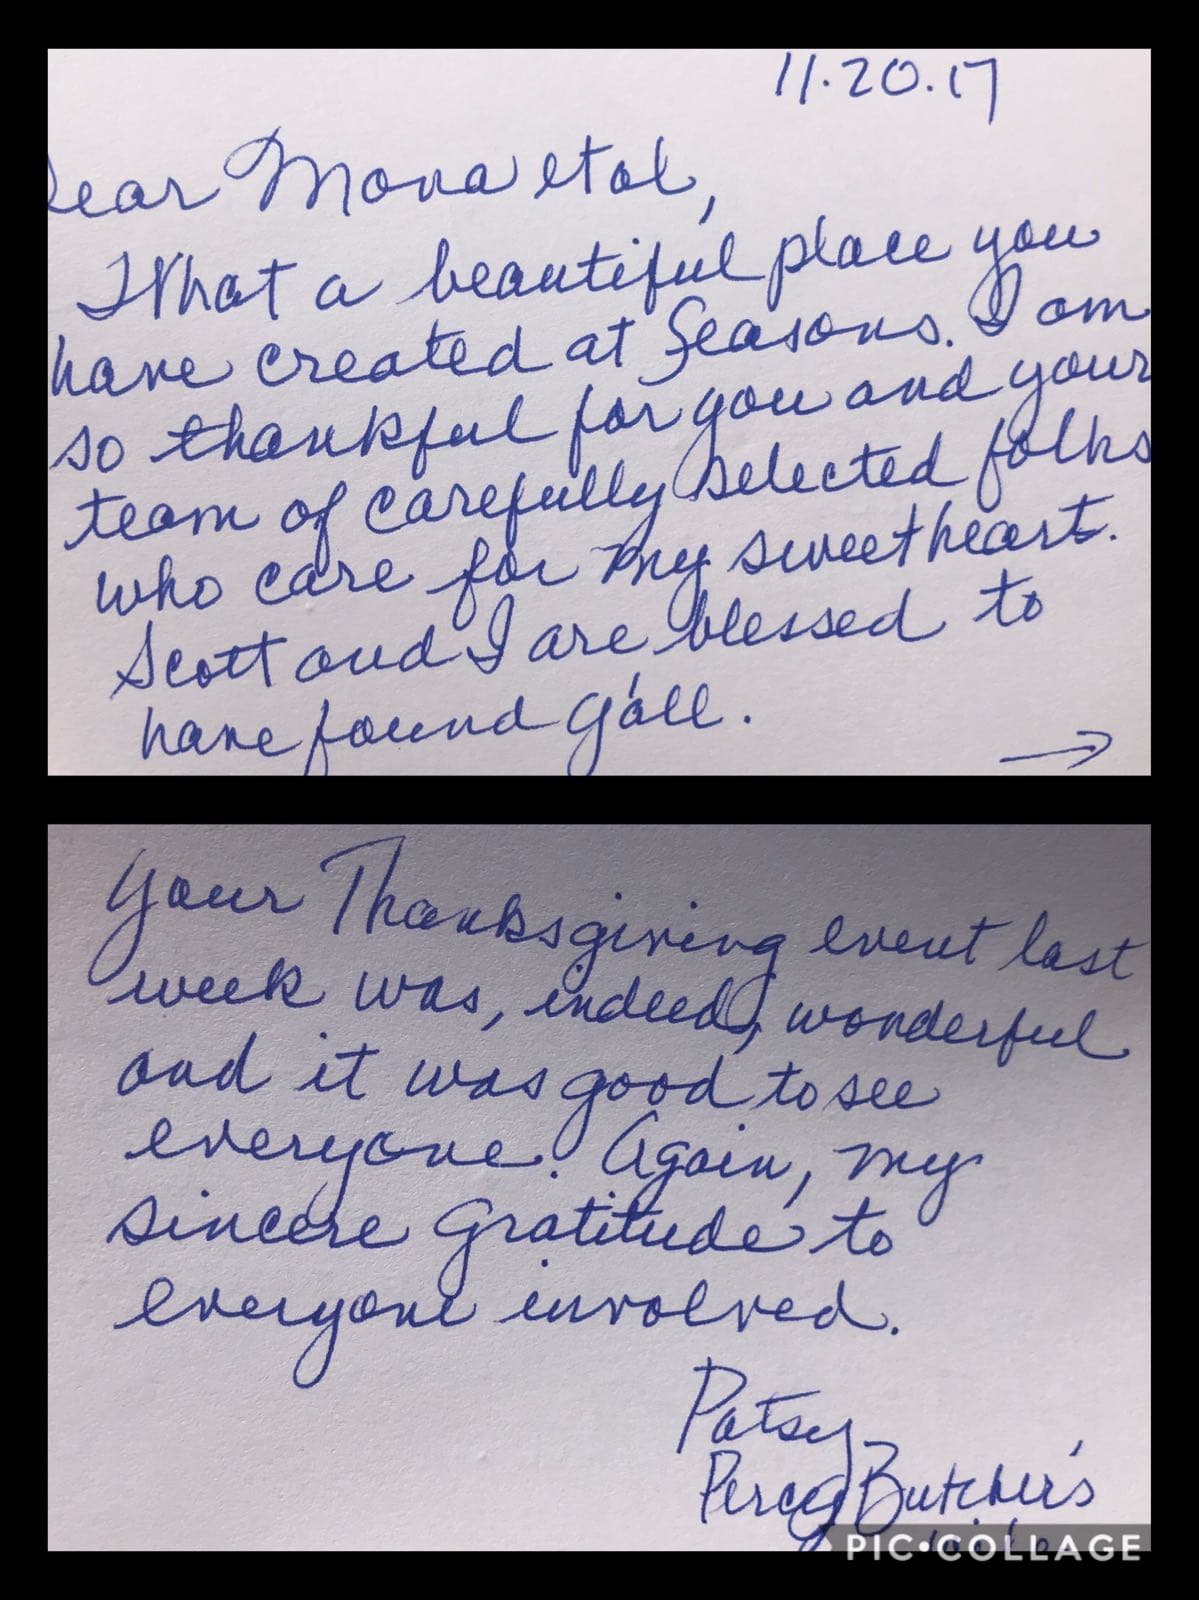 11.20.17
Dear Mona et al,
What a beautiful place you
have created at Seasons. I am
so thankful for you and your
team of carefully selected folks
who care for my sweetheart.
Scott and I are blessed to
have found y'all.
→
Your Thanksgiving event last
week was, indeed, wonderful
and it was good to see
everyone! Again, my
sincere gratitude to
everyone involved.
Patsy
Percy Butcher's
PIC•COLLAGE